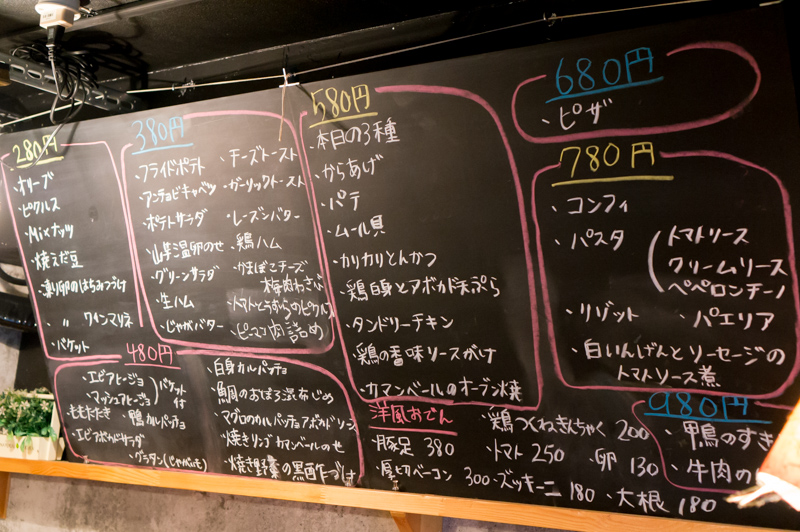 280円
・オリーブ
・ピクルス
・Mixナッツ
・焼えだ豆
・うずら卵のはちみつづけ
・〃 ワインマリネ
・バケット
380円
・フライドポテト
・アンチョビキャベツ
・ポテトサラダ
・山芋温卵のせ
・グリーンサラダ
・生ハム
・じゃがバター
・チーズトースト
・ガーリックトースト
・レーズンバター
・鶏ハム
・かまぼこチーズ
梅肉わさび
・トマトとうずらのピクルス
・ピーマン肉詰め
480円
・エビアヒージョ
・マッシュアヒージョ
バケット付
・ももたたき
・鴨カルパッチョ
・エビアボカドサラダ
・グラタン(じゃがいも)
・白身カルパッチョ
・鯛のおぼろ昆布じめ
・マグロのカルパッチョアボカドソース
・焼きリンゴカマンベールのせ
・焼き野菜の黒酢づけ
580円
・本日の3種
・からあげ
・パテ
・ムール貝
・カリカリとんかつ
・鶏白身とアボカド天ぷら
・タンドリーチキン
・鶏の香味ソースがけ
・カマンベールのオーブン焼
680円
・ピザ
780円
・コンフィ
・パスタ
トマトソース
クリームソース
ペペロンチーノ
・リゾット
・パエリア
・白いんげんとソーセージの
トマトソース煮
980円
・鴨のすき
・牛肉の
洋風おでん
・豚足 380
・厚ギリベーコン 300
・鶏つくねきんちゃく 200
・トマト 250
・卵 130
・ズッキーニ 180
・大根 180